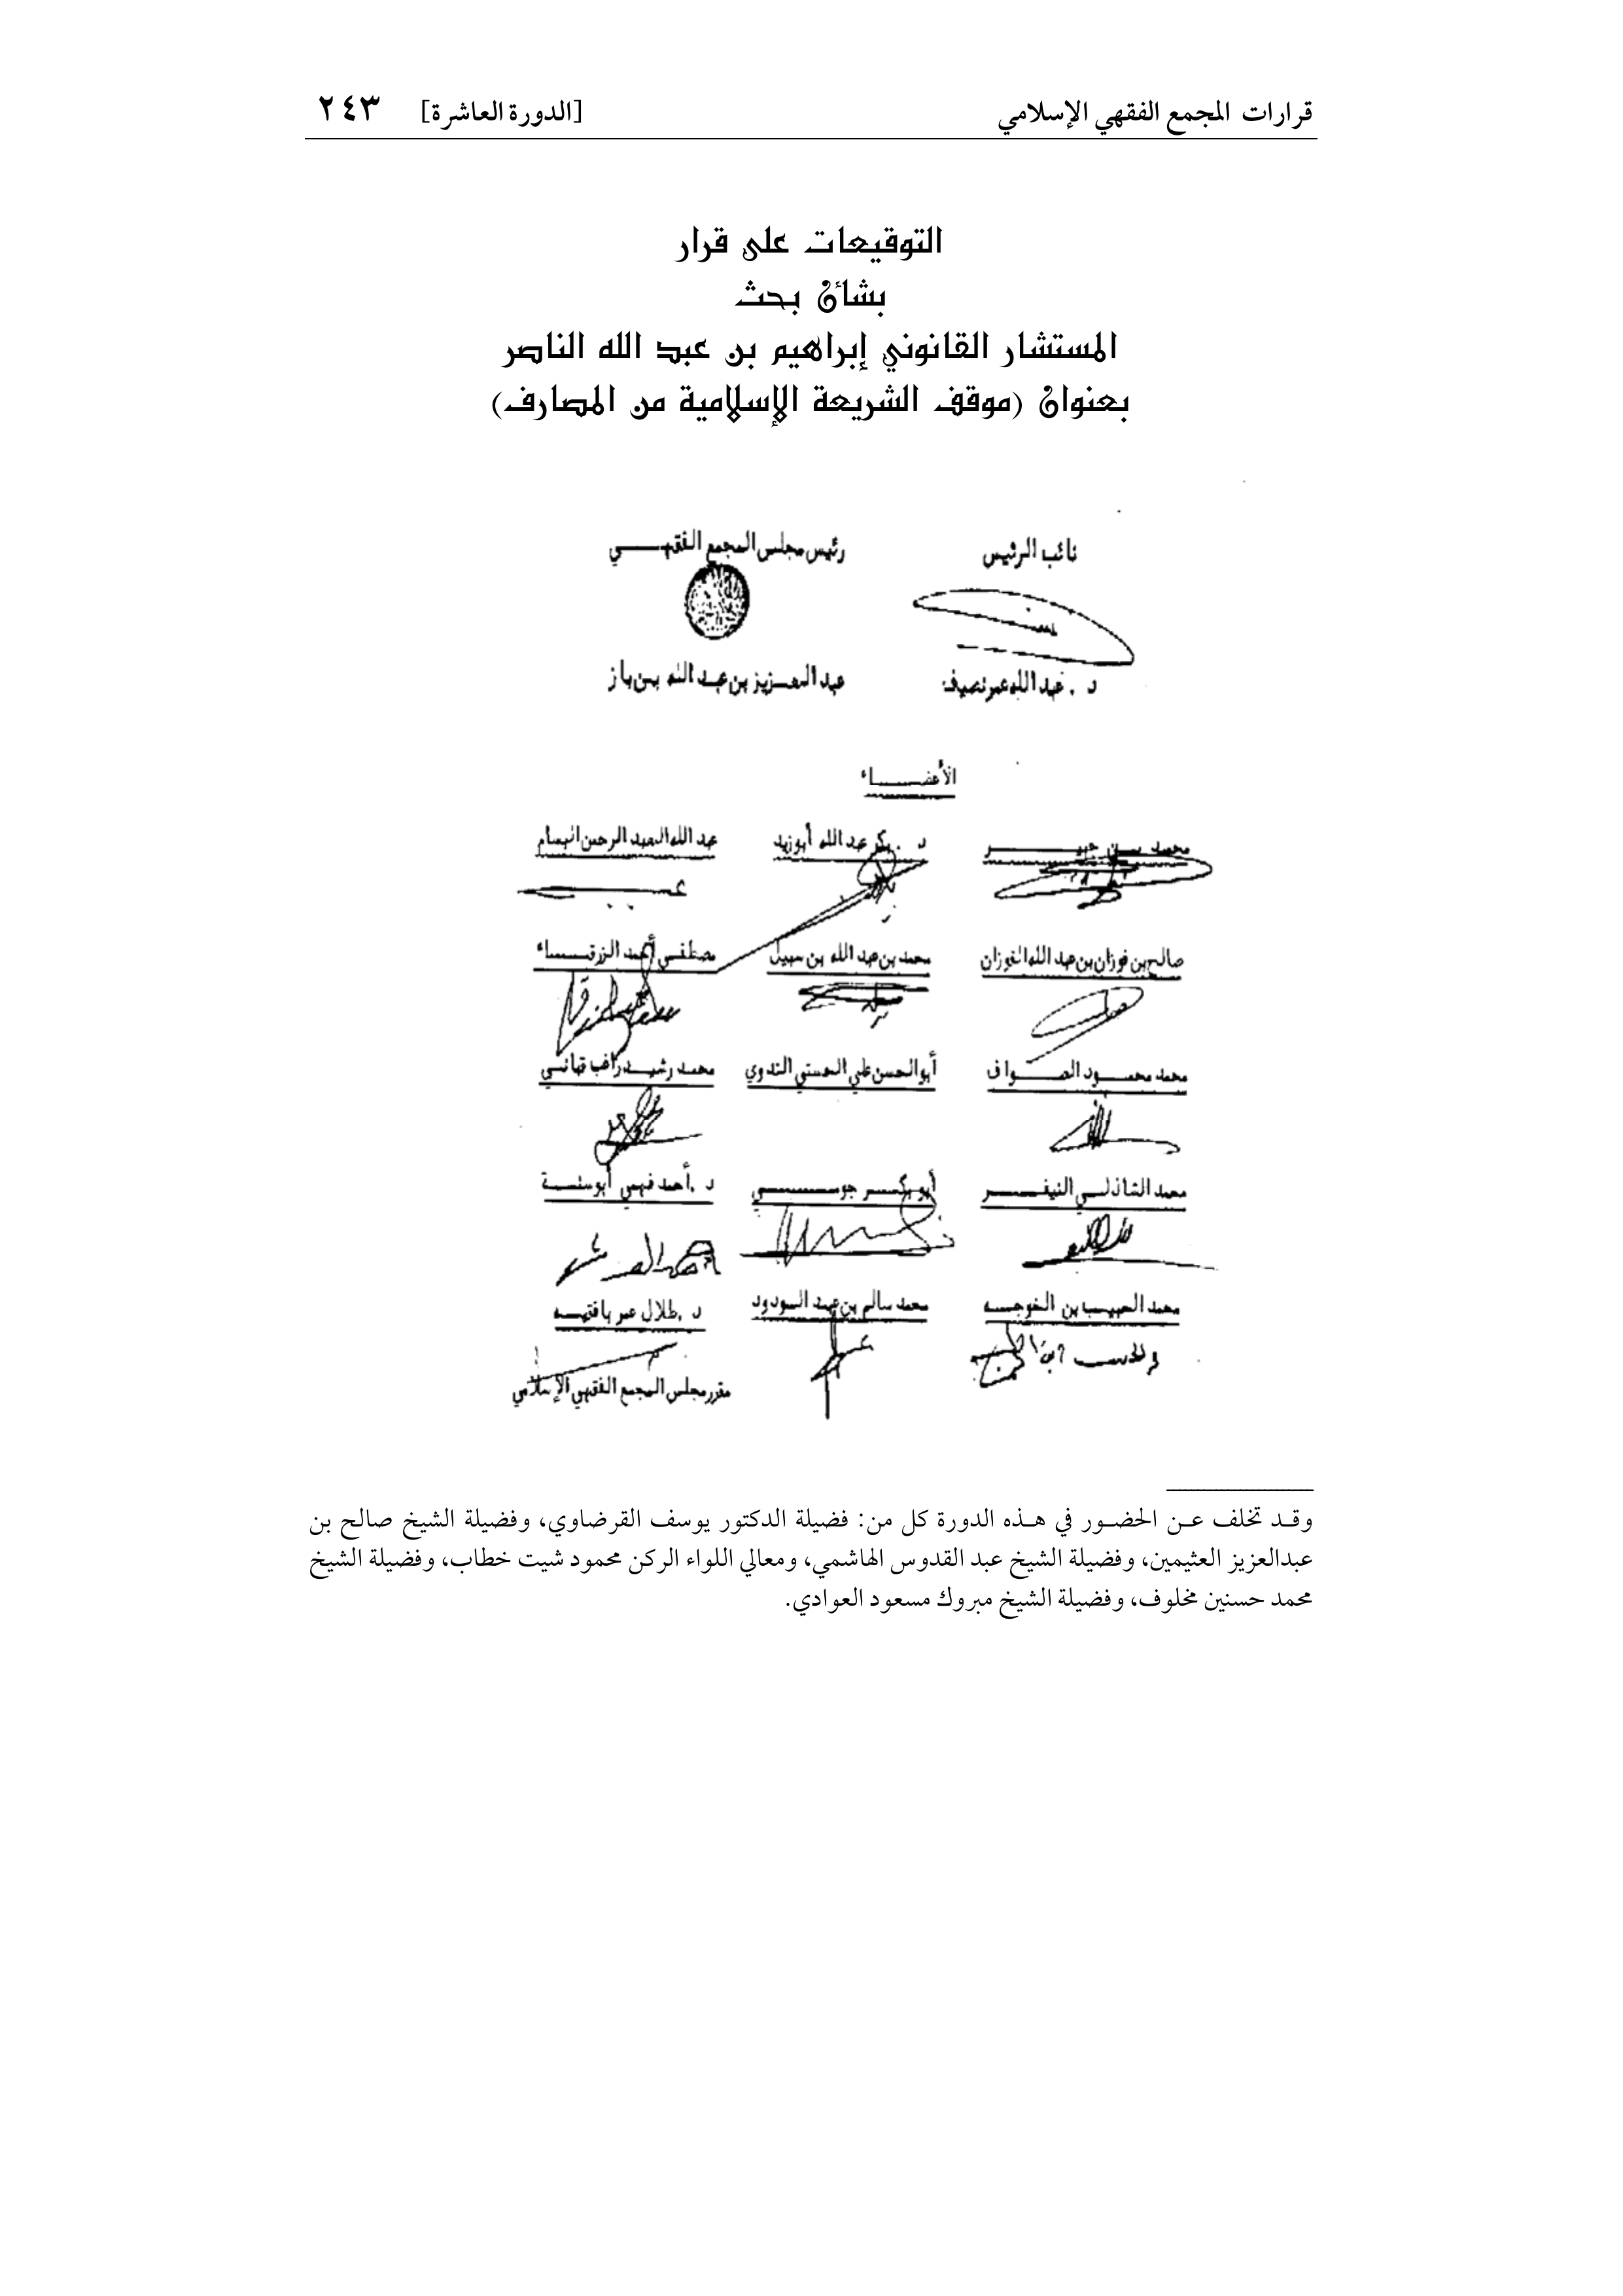 قرارات المجمع الفقهي الإسلامي [الدورة العاشرة] ٢٤٣
التوقيعات على قرار
بشأن بحث
المستشار القانوني إبراهيم بن عبد الله الناصر
بعنوان (موقف الشريعة الإسلامية من المصارف)
نائب الرئيس رئيس مجلس المجمع الفقهي
د . عبد الله عمر نصيف عبد العزيز بن عبد الله بن باز
الأعضاء
محمد بن جبير د . بكر عبد الله أبو زيد عبد الله العبد الرحمن البسام
صالح بن فوزان بن عبد الله الفوزان محمد بن عبد الله بن سبيل مصطفى أحمد الزرقاء
محمد محمود الصواف أبو الحسن علي الحسني الندوي محمد رشيد راغب قباني
محمد الشاذلي النيفر أبو بكر جومي د . أحمد فهمي أبو سنة
محمد الحبيب بن الخوجه محمد سالم بن عبد الودود د . طلال عمر بافقيه
مقرر مجلس المجمع الفقهي الإسلامي
وقد تخلف عن الحضور في هذه الدورة كل من: فضيلة الدكتور يوسف القرضاوي، وفضيلة الشيخ صالح بن
عبدالعزيز العثيمين، وفضيلة الشيخ عبد القدوس الهاشمي، ومعالي اللواء الركن محمود شيت خطاب، وفضيلة الشيخ
محمد حسنين مخلوف، وفضيلة الشيخ مبروك مسعود العوادي.